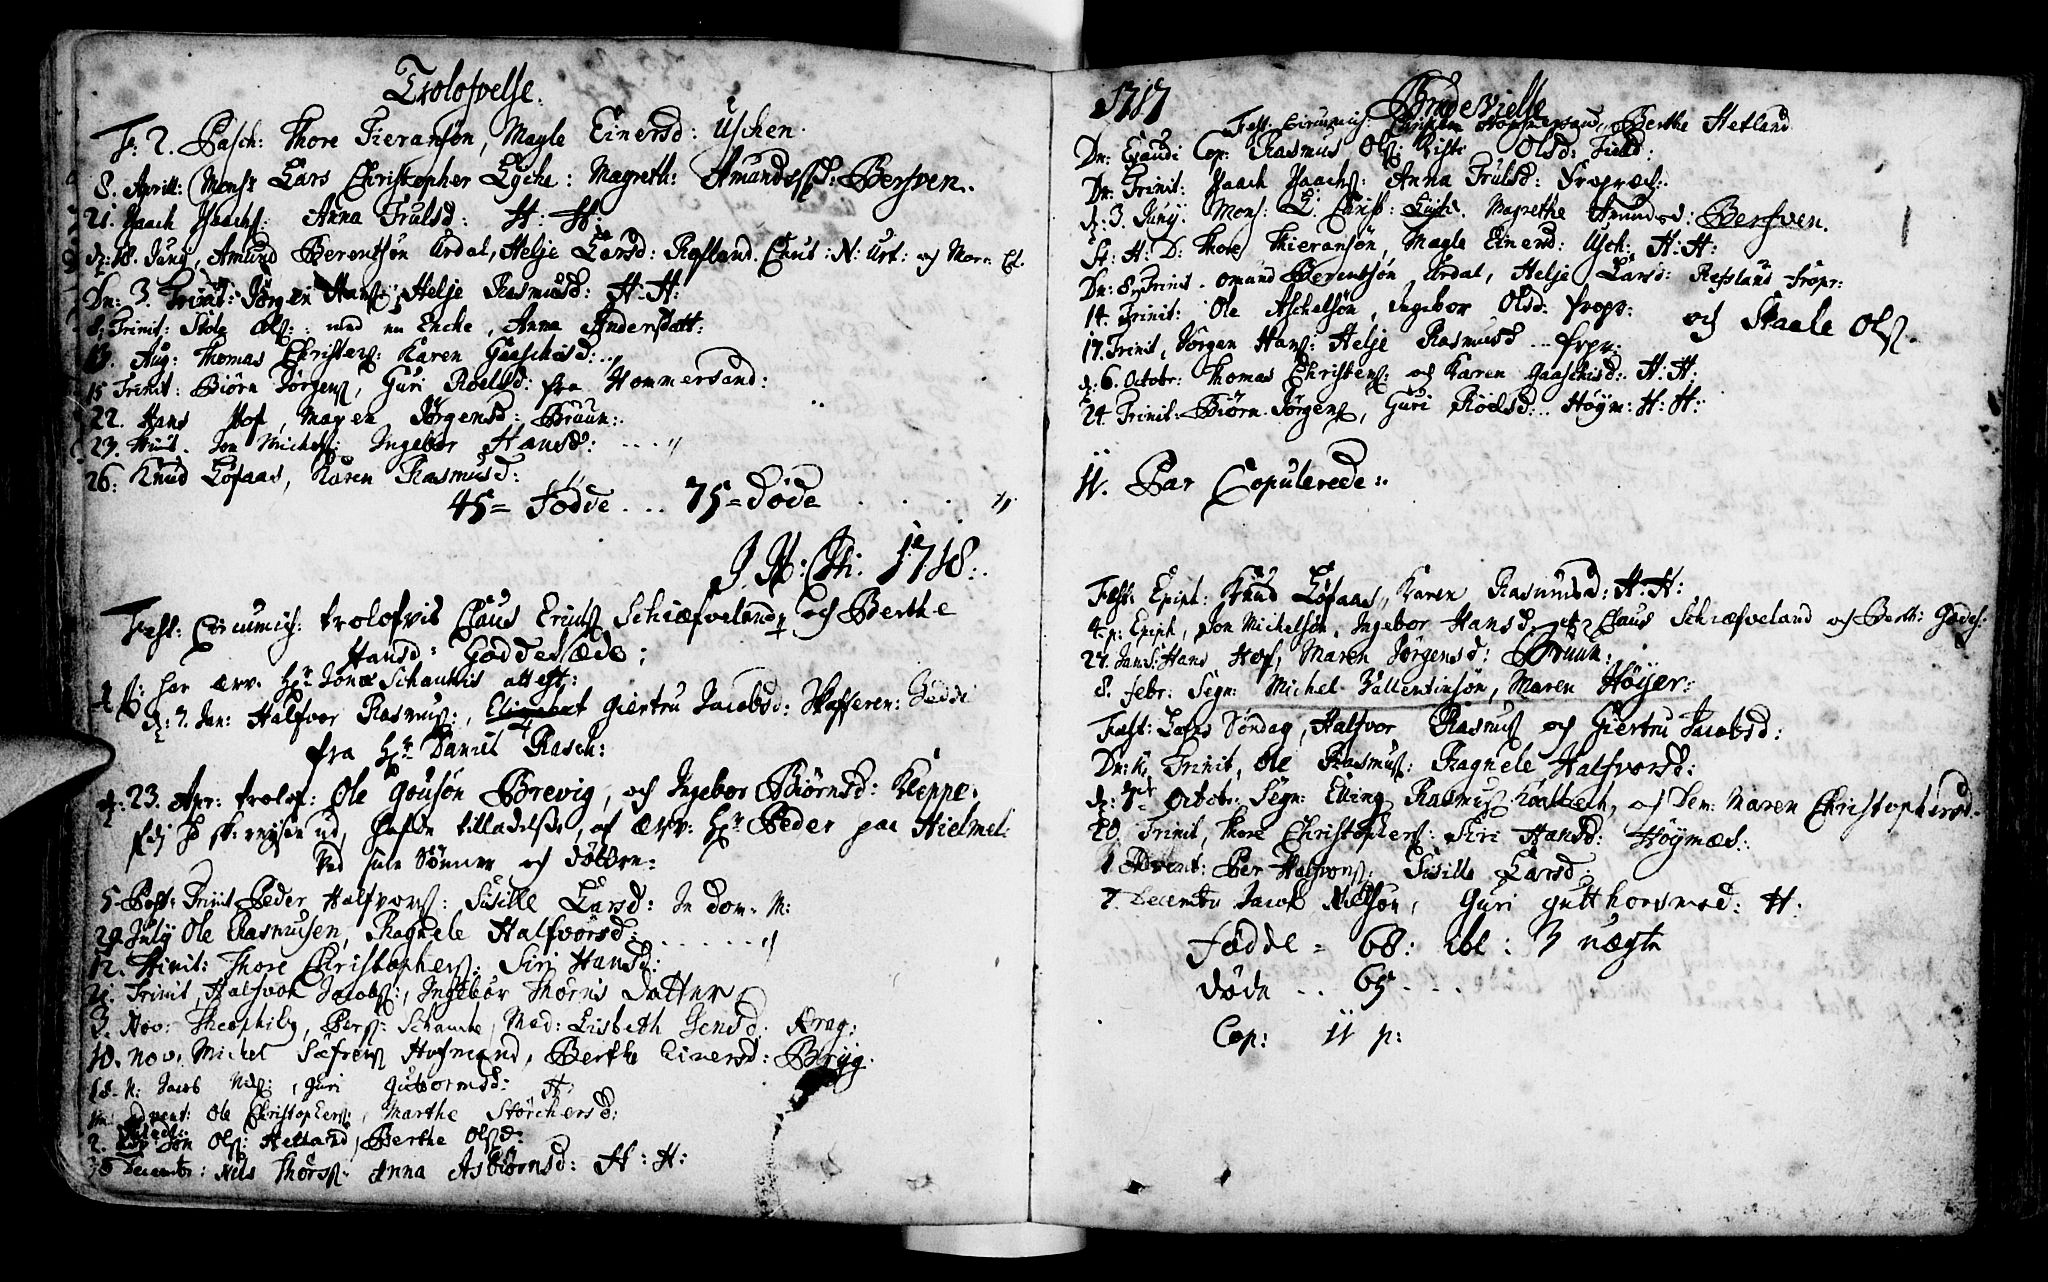 Trolofvelse.
F: 2. Pasch: Thore Tieransøn, Magle Einersd: Uschen.
8. Aprill: Monsr Lars Christopher Lyche: Magreth: Amundssd: Bersven.
21. Isaach Isaachs: Anna Trulsd: H: H:
d: 18. Junij, Amund Berentsøn Ardal, Helje Larsd: Rofland. Cnut: N: Urt: och Morn: El.
Dn: 3. Trinit: Jørgen Hans: Helje Rasmusd: H: H:
8: Trinit: Støle Ols: med en Encke, Anna Andersdatt:
19. Aug: Thomas Christens: Karen Gaaschisd:
15 Trinit: Biørn Jørgens, Guri Roelsd: fra Hommersand:
22. Hans Hof, Maren Jørgensd: Bruun:
23. Trinit. Jon Michels: Ingebor Hansd:
26: Knud Løfaas, Karen Rasmusd:
45 = Fødde ... 75 = døde
J. N: Chr: 1718:
Fest: Circumcis: trolofvis Claus Erichs Schiæfveland, och Berthe
Hansd: Goddesæde;
har ærv. Hr Jonæ Schanchis attest:
d: 2. Jan: Halfvor Rasmus:, Giertru Jacobsd: Skafferen: Gedde
fra Hr Daniel Rasch:
d: 23. Apr: trolof: Ole Gousøn Brevig, och Ingebor Biørnsd: Kleppe:
ud, tilladelse, af ærv: Hr Peder paa Hielmel:
Ved sine Sønner och døttre:
5. Post: Trinit Peder Halfvors: Sisille Larsd: In dom: N:
29. July Ole Rasmusen, Ragnele Halfvorsd:
12. Trinit: Thore Christophers: Siri Hansd:
21. Trinit, Halfvor Jacobs:, Ingebor Thoris Datter
3. Nov: Theophilus, Pers: Schanche, Mad: Lisbeth Jensd: Krag:
10. Nov. Michel Søfrens Hofmand, Berthe Einersd: Bryg.
18. N: Jacob Nels:, Guri Gutormsd: H:
Advent: Ole Christophers:, Marthe Størchersd:
2. Jon Ols: Hetland, Berthe Olsd:
Decembr: Nils Thors: Anna Asbiørnsd: H: H:
1717 Brudevielse
Fest. Circumcis: Christen Hommersand, Berthe Hetland
Dn: Exaudi Cop: Rasmus Ols: Kisti Olsd: Field:
Dn: Trinit: Isaach Isaachs: Anna Trulsd: Fropræs:
d: 3. Juny. Mons: L: Chris: Lyche. Magrethe Amundsd: Bersven.
St: H: D: Thore Thieransøn, Magle Einersd: Usch: H: H:
Dn: 8. Trinit. Omund Berentsøn, Ardal, Helje Larsd: Refsland Fropr:
14. Trinit: Ole Aschelsøn, Ingebor Olsd: fropr: och Skaale Ols.
17. Trinit, Jørgen Hans: Helje Rasmusd... fropr:
d: 6. Octobr: Thomas Christens: och Karen Gaaschisd: H: H:
24 Trinit: Biørn Jørgens, Guri Roelsd: Høym: H: H:
11. Par Copulerede:
Fest: Epiph: Knud Løfaas, Karen Rasmusd: H: H:
4. p: Epiph, Jon Michelsøn, Ingebor Hansd. et Claus Schiæfveland och Berth: Godes:
27. Jan: Hans Hof, Maren Jørgensd: Bruun:
8. febr: Segn: Michel Vallentinsøn, Maren Höyer:
Fest: Søndag, Halfvor Rasmus och Giertru Jacobsd:
Dn: 11 Trinit, Ole Rasmus: Ragnele Halfvorsd:
d: 7de Octobr: Segn: Elling Rasmus Koltbech, och Dem: Maren Christophersd:
20. Trinit, Thore Christophers: Siri Hansd: Höymæs:
1 Advent: Per Halfvors: Sisille Larsd:
7. Decembr Jacob Nielsøn, Guri Gutthormsd: H:
Fødde = 68: ibl: 3 uægte
døde .. 65
Cop: 11 p: